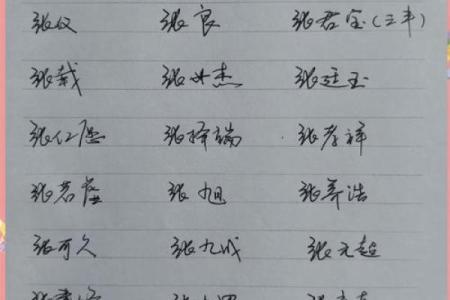 张仪 张良 张君宝(三丰)
张载 张世杰 张廷玉
张仁愿 张择端 张孝祥
张若虚 张旭 张养浩
张可久 张九成 张元超
张 张 张